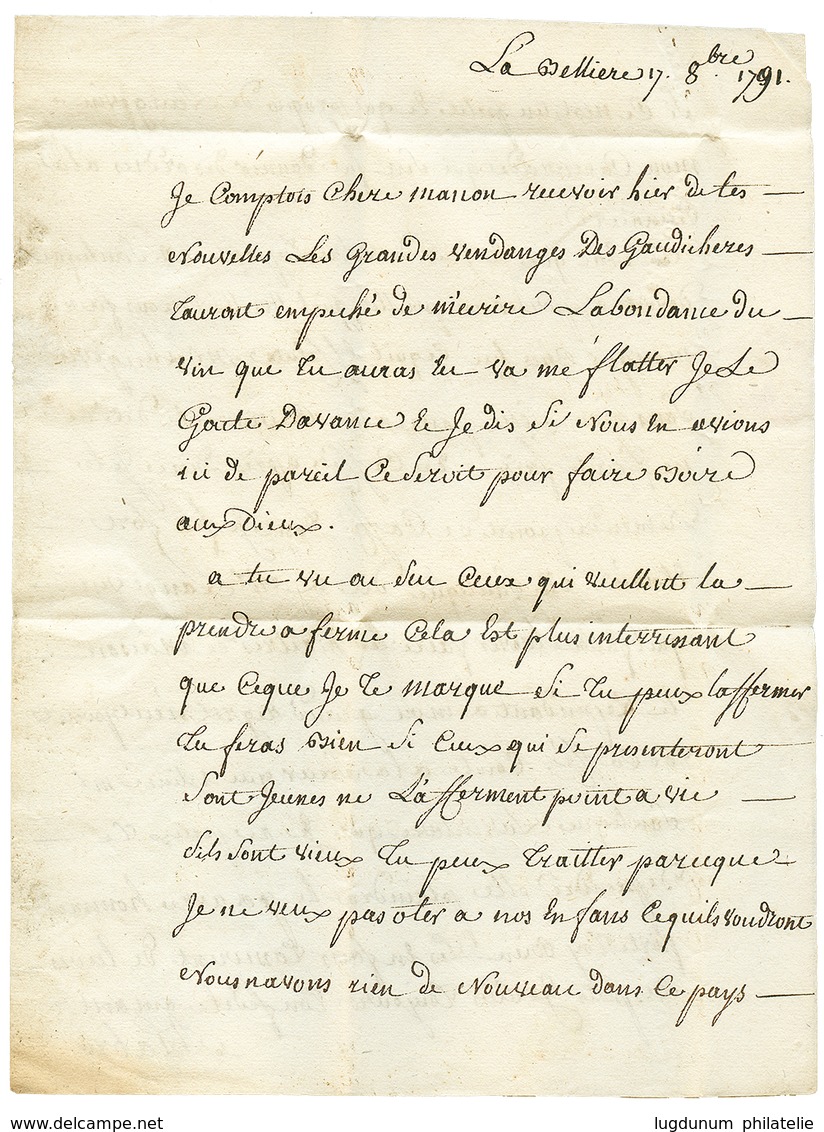 La Belliere 17. 8bre. 1791.
Je Comptois Chere manon recevoir hier de tes
Nouvelles Les Grandes vendanges Des Gaudicheres
tauront empeché de m'ecrire Labondance du
vin que tu auras tu va me flatter Je Le
Goute Davance et Je dis Si Nous En avions
ici de pareil Ce Seroit pour faire Boire
aux Dieux.
a tu vu ou Seu Ceux qui veullent la
prendre a ferme Cela Est plus interressant
que Ceque Je te marque Si tu peux laffermer
tu feras Bien Si Ceux qui Se presenteront
Sont Jeunes ne L'afferment point a vie
Sils Sont vieux tu peux traitter parceque
Je ne veux pas oter a nos Enfans Cequils voudront
Nous navons rien de Nouveau dans Ce pays
lugdunum philatelie